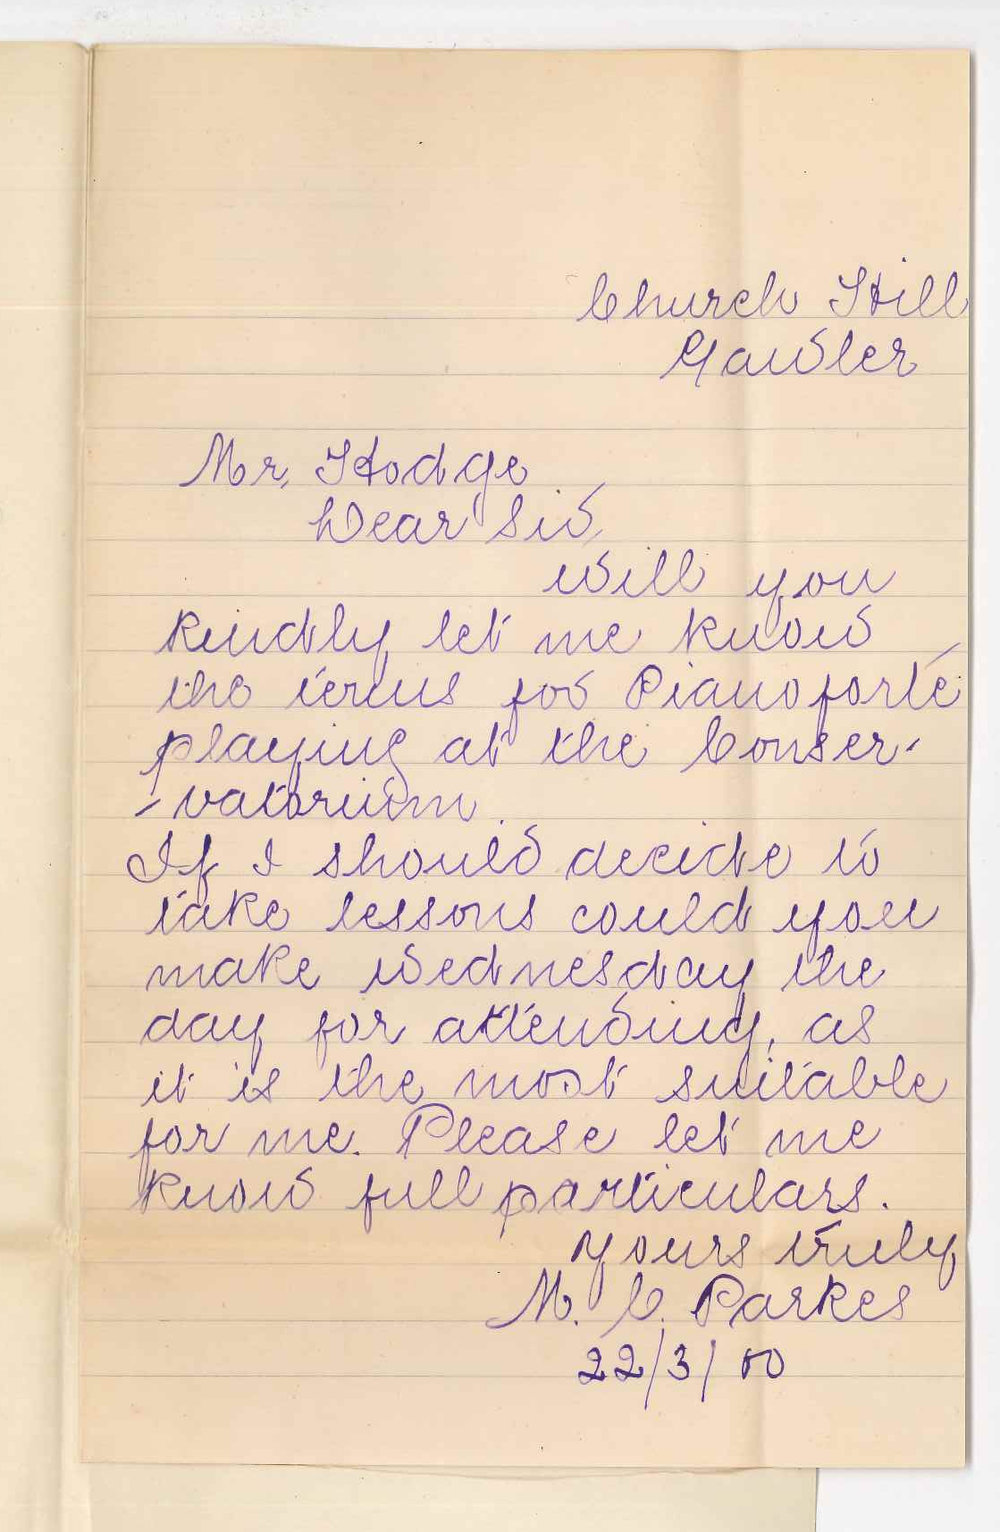 Church Hill
Gawler
Mr, Hodge
Dear Sir,
Will you
kindly let me know
the terms for Pianoforte
playing at the Conser-
-vatorium
If I should decide to
take lessons could you
make Wednesday the
day for attending, as
it is the most suitable
for me. Please let me
know full particulars.
Yours truly
M. C. Parkes
22/3/00